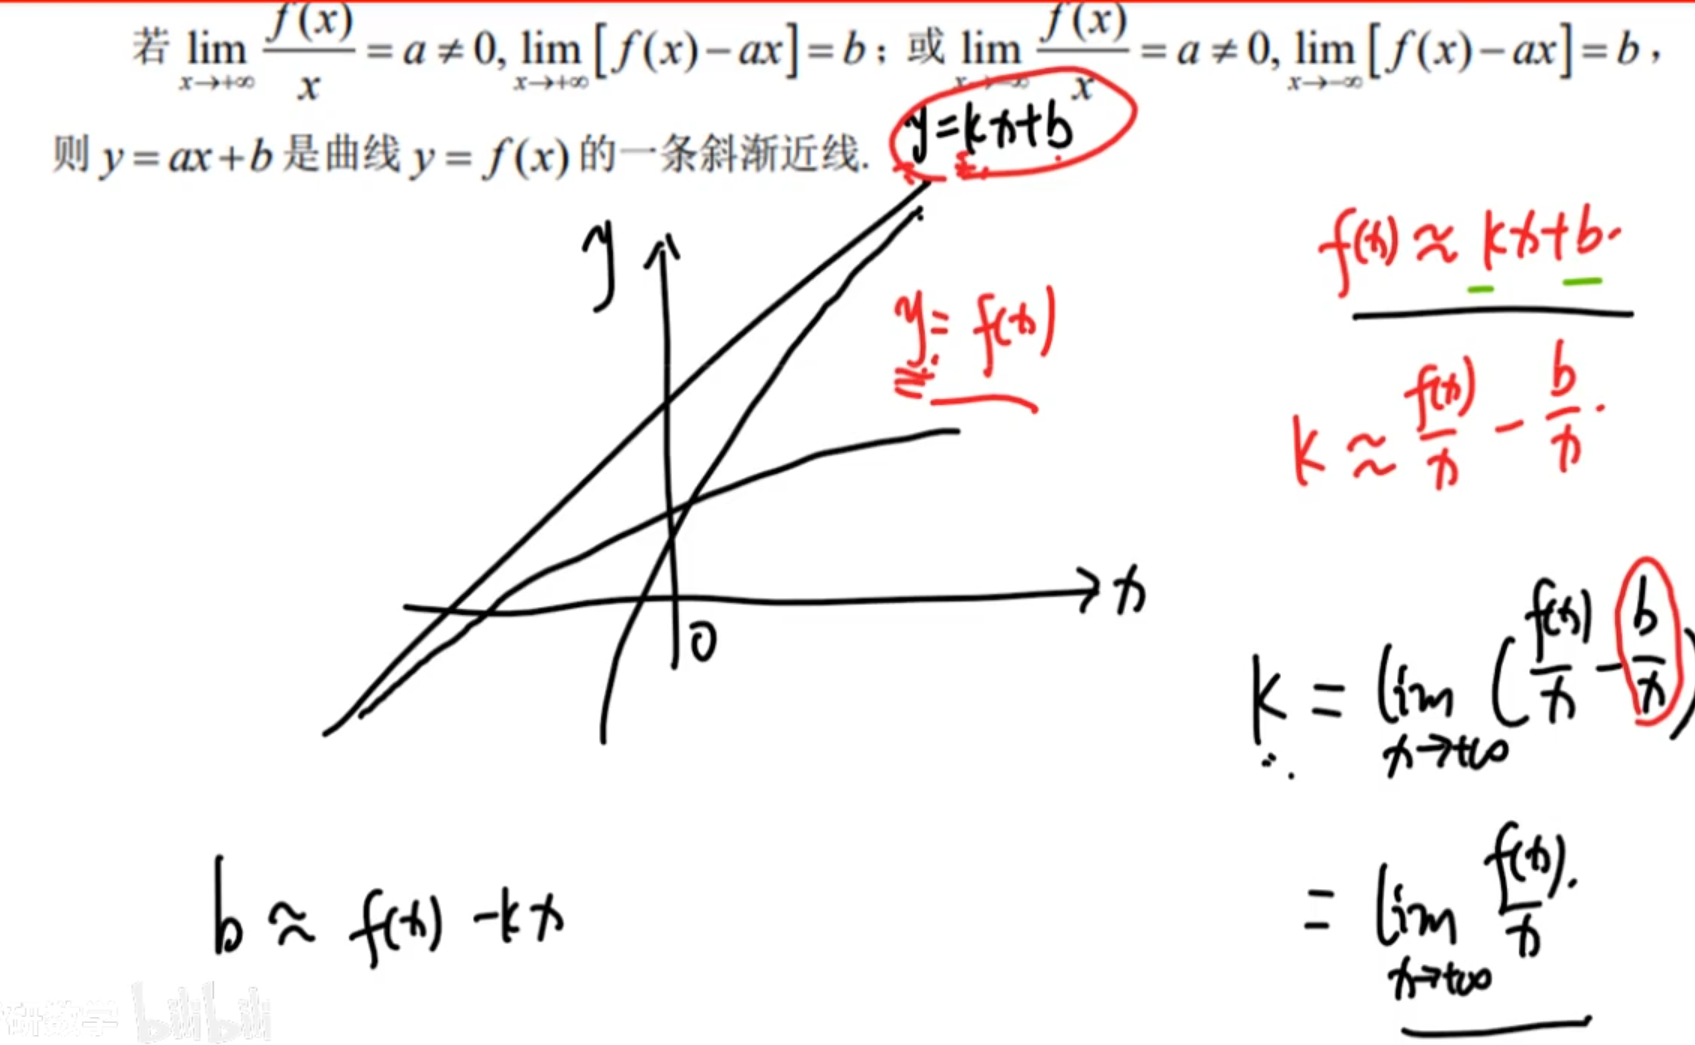 若 lim x→+∞ f(x)/x = a ≠ 0, lim x→+∞ [f(x)−ax] = b；或 lim x→−∞ f(x)/x = a ≠ 0, lim x→−∞ [f(x)−ax] = b，
则 y = ax+b 是曲线 y = f(x) 的一条斜渐近线.
y=kx+b
y
f(x) ≈ kx+b.
y= f(x)
k ≈ f(x)/x − b/x.
x
0
k = lim x→+∞ (f(x)/x − b/x)
= lim x→+∞ f(x)/x.
b ≈ f(x) −kx
研数学 bilibili